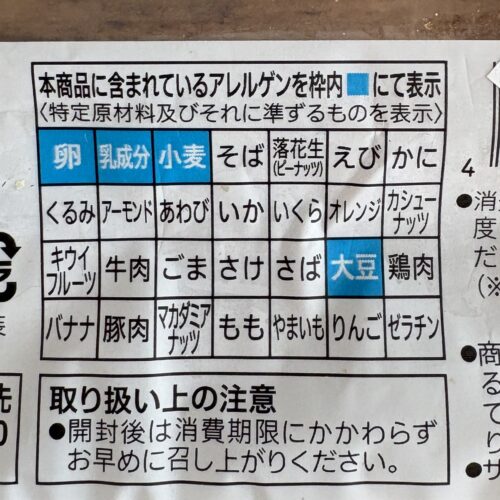 本商品に含まれているアレルゲンを枠内■にて表示
〈特定原材料及びそれに準ずるものを表示〉
卵 乳成分 小麦 そば 落花生(ピーナッツ) えび かに
くるみ アーモンド あわび いか いくら オレンジ カシューナッツ
キウイフルーツ 牛肉 ごま さけ さば 大豆 鶏肉
バナナ 豚肉 マカダミアナッツ もも やまいも りんご ゼラチン
取り扱い上の注意
●開封後は消費期限にかかわらず
お早めに召し上がりください。
4
●消
度
だ
(※
●商
る
て
り